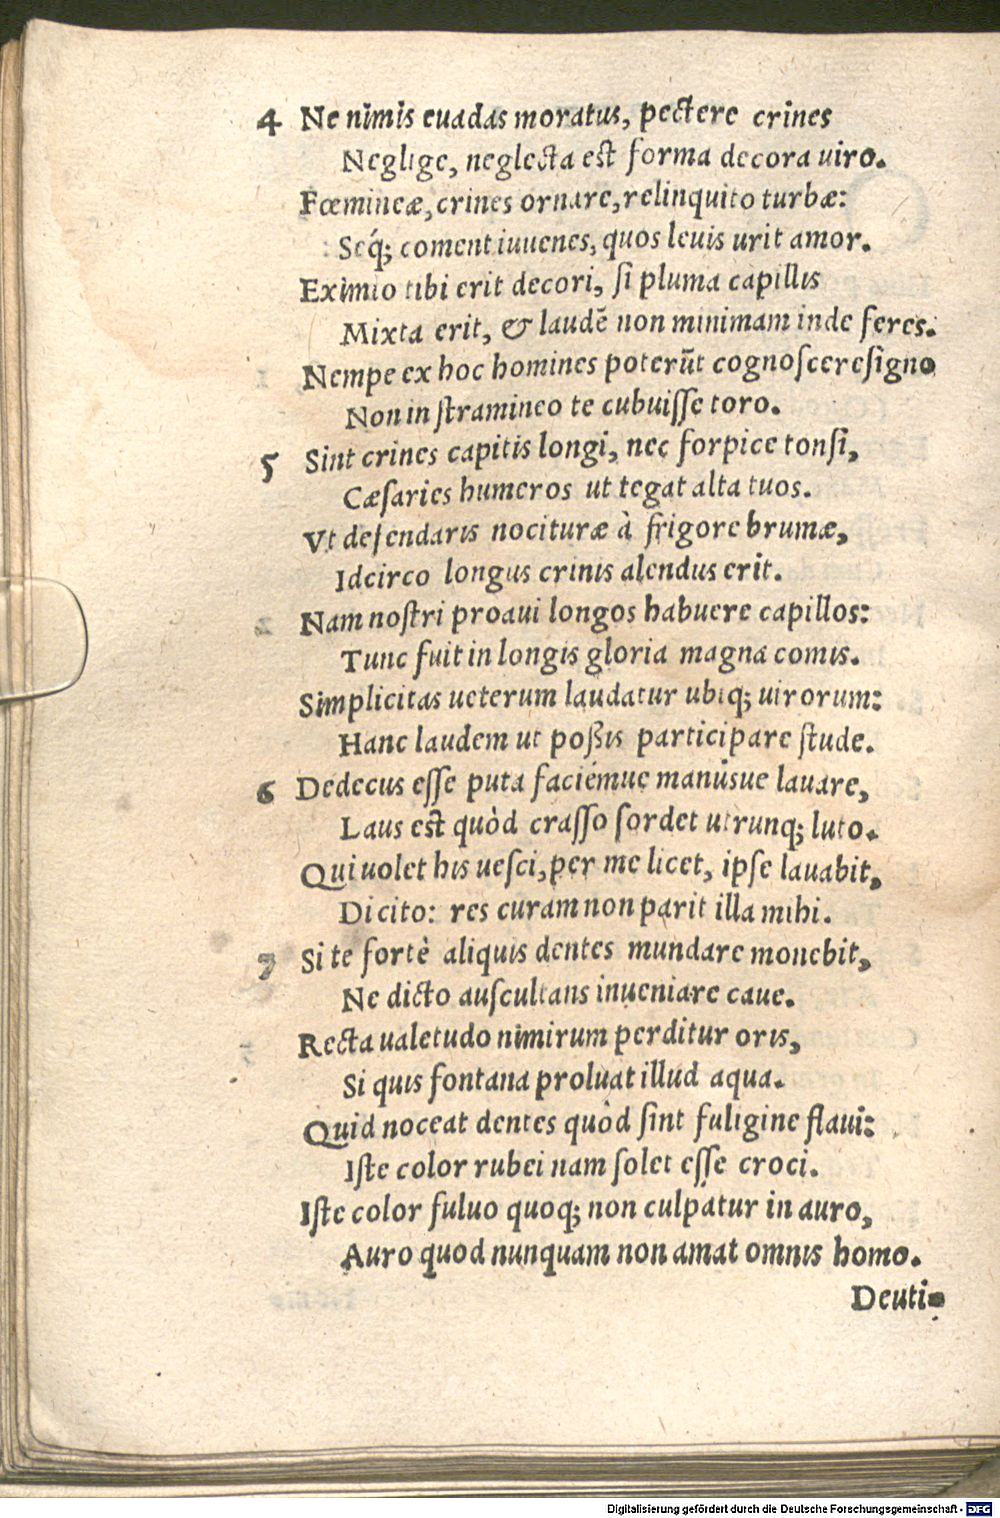 4 Ne nimis euadas moratus, pectere crines
Neglige, neglecta est forma decora uiro.
Fœmineæ, crines ornare, relinquito turbæ:
Seq́; coment iuuenes, quos leuis urit amor.
Eximio tibi erit decori, si pluma capillis
Mixta erit, & laudē non minimam inde feres.
Nempe ex hoc homines poterūt cognoscere signo
Non in stramineo te cubuisse toro.
5 Sint crines capitis longi, nec forpice tonsi,
Cæsaries humeros ut tegat alta tuos.
Vt defendaris nocituræ à frigore brumæ,
Idcirco longus crinis alendus erit.
Nam nostri proaui longos habuere capillos:
Tunc fuit in longis gloria magna comis.
Simplicitas ueterum laudatur ubiq; uirorum:
Hanc laudem ut poßis participare stude.
6 Dedecus esse puta faciémue manúsue lauare,
Laus est quòd crasso sordet utrunq; luto.
Qui uolet his uesci, per me licet, ipse lauabit,
Dicito: res curam non parit illa mihi.
7 Si te fortè aliquis dentes mundare monebit,
Ne dicto auscultans inueniare caue.
Recta ualetudo nimirum perditur oris,
Si quis fontana proluat illud aqua.
Quid noceat dentes quòd sint fuligine flaui:
Iste color rubei nam solet esse croci.
Iste color fuluo quoq; non culpatur in auro,
Auro quod nunquam non amat omnis homo.
Deuti-
Digitalisierung gefördert durch die Deutsche Forschungsgemeinschaft - DFG